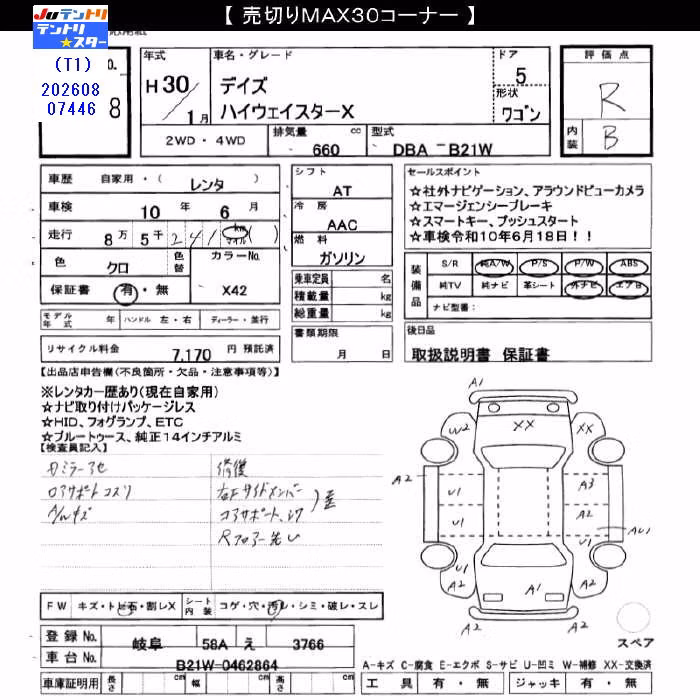 【 売切りMAX30コーナー 】
Juテントリ
テントリ★スター
(T1)
202608
07446
No.
8
年式
H 30 / 1 月
車名・グレード
デイズ
ハイウェイスターX
ドア
5
形状
ワゴン
評価点
R
内装
B
2WD・4WD
排気量 660 cc
型式 DBA - B21W
車歴 自家用・( レンタ )
車検 10 年 6 月
走行 8 万 5 千 2 4 1 km マイル ( )
色 クロ
色替
カラーNo. X42
保証書 有・無
モデル年式 年 ハンドル 左・右 ディーラー・並行
リサイクル料金 7,170 円 預託済
シフト
AT
冷房
AAC
燃料
ガソリン
乗車定員 名
積載量 kg
総重量 kg
書類期限
月 日
セールスポイント
☆社外ナビゲーション、アラウンドビューカメラ
☆エマージェンシーブレーキ
☆スマートキー、プッシュスタート
☆車検令和10年6月18日!!
装備品
S/R 純A/W P/S P/W ABS
純TV 純ナビ 革シート 外ナビ エアB
ナビ型番:
後日品
取扱説明書 保証書
【出品店申告欄(不良箇所・欠品・注意事項等)】
※レンタカー歴あり(現在自家用)
☆ナビ取り付けパッケージレス
☆HID、フォグランプ、ETC
☆ブルートゥース、純正14インチアルミ
【検査員記入】
コアサポートコスリ
A/Wキズ
修復
右Fサイドメンバー
コアサポート
差
A1
W2
XX
XX
A2
U1
U1
A3
A2
U1
U1
A2
A1
A2
A2
FW キズ・トビ石・割レX
シート内装 コゲ・穴・汚レ・シミ・破レ・スレ
スペア
登録No. 岐阜 58A え 3766
車台No. B21W-0462864
A-キズ C-腐食 E-エクボ S-サビ U-凹ミ W-補修 XX-交換済
車庫証明用 長さ cm 幅 cm 高さ cm
工具 有・無 ジャッキ 有・無